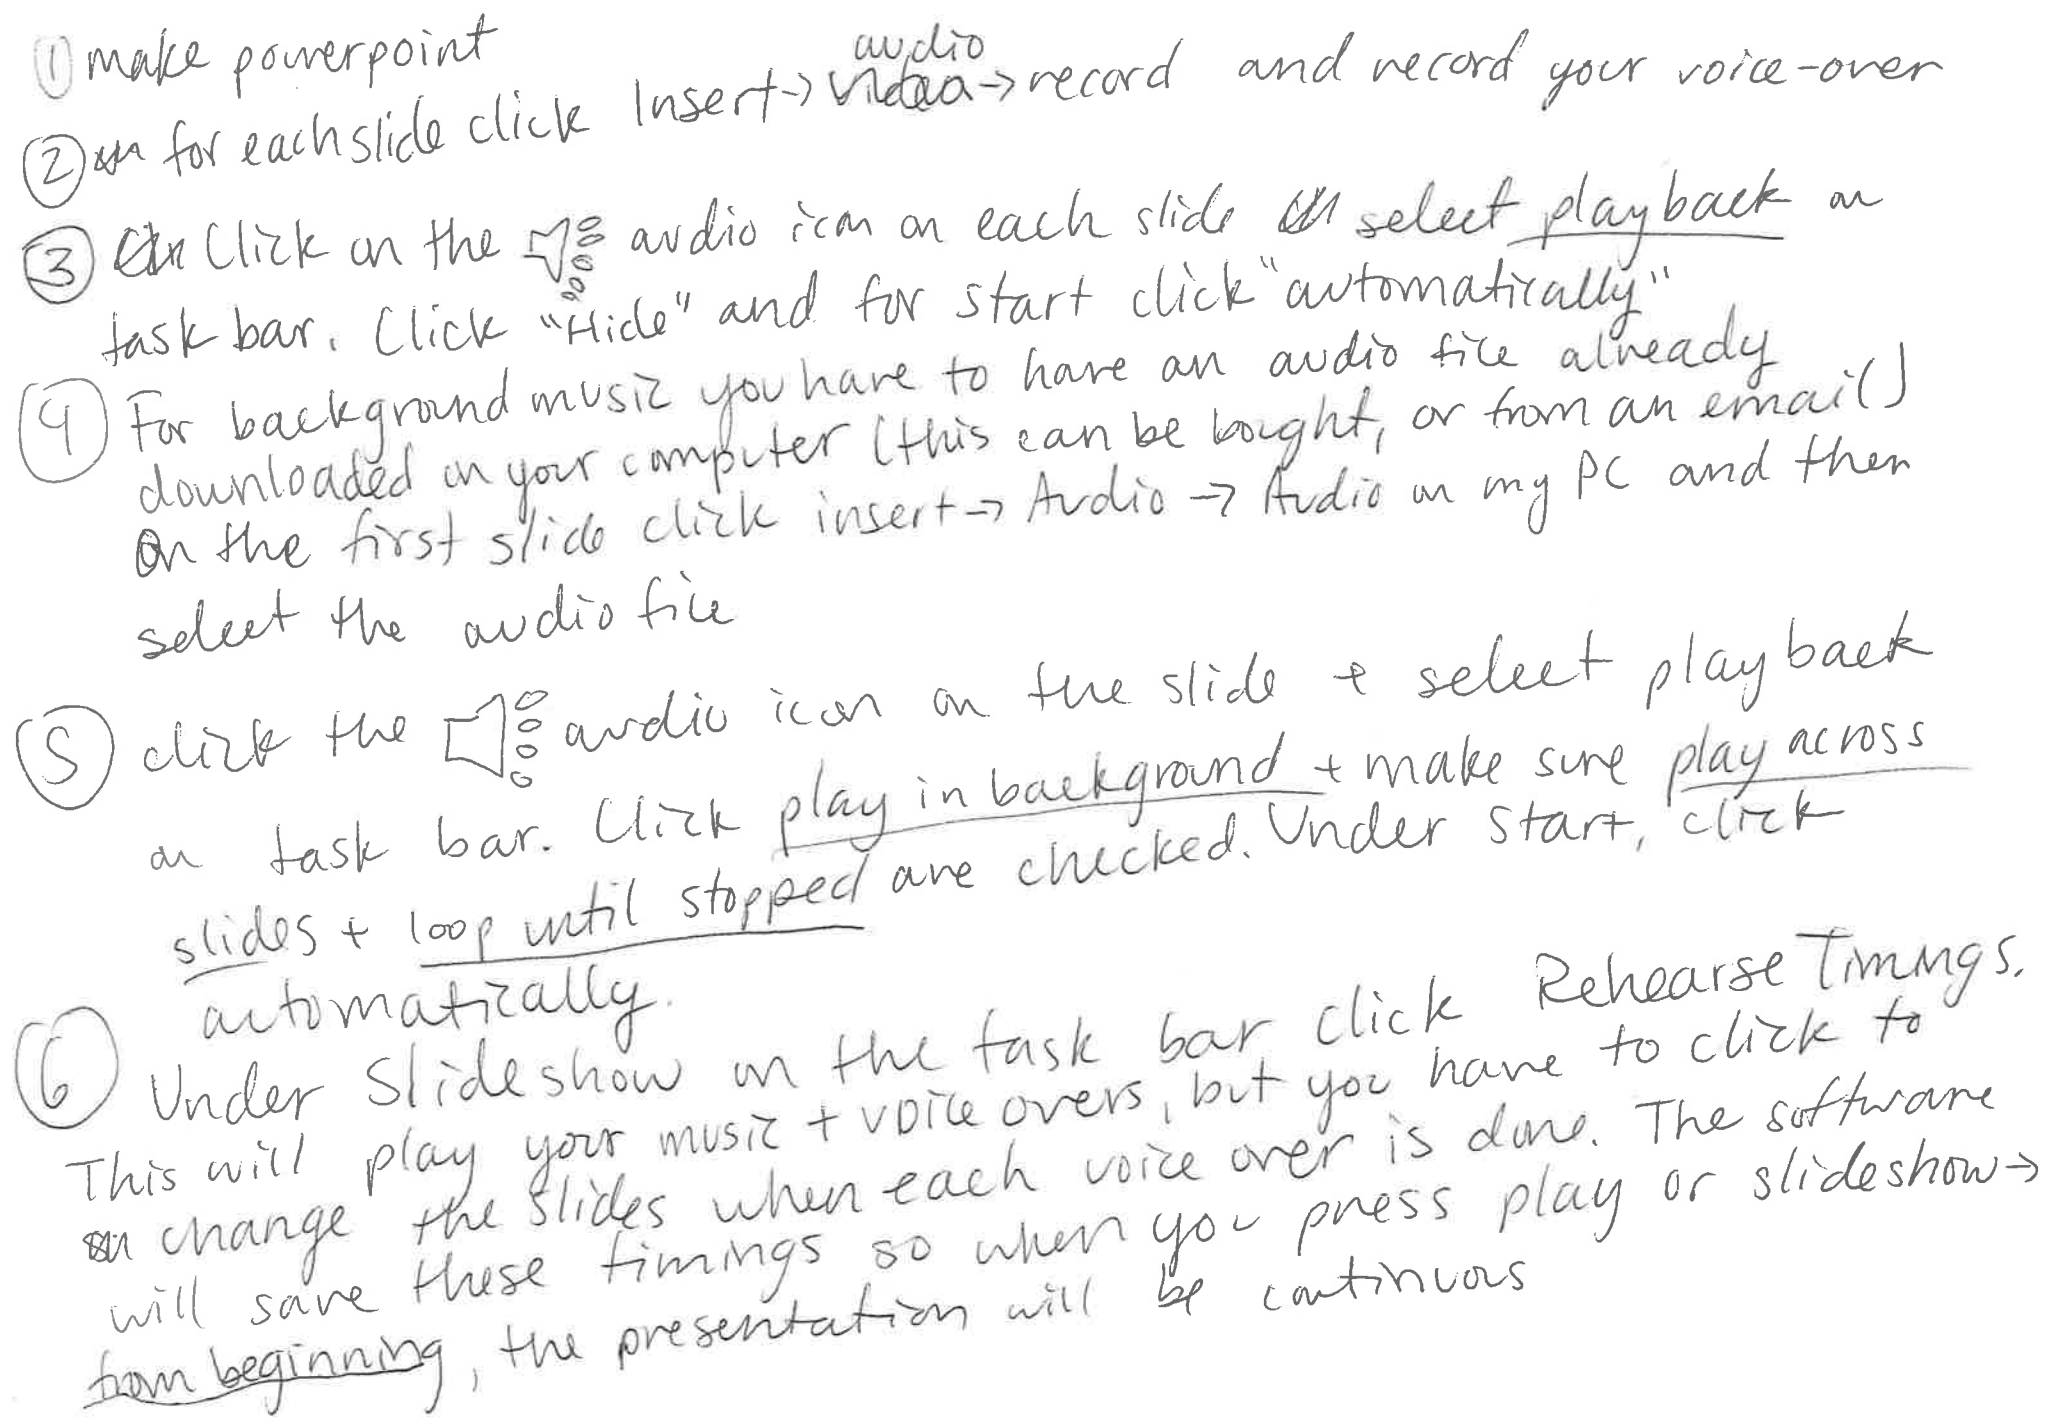 ① make powerpoint
② for each slide click Insert → audio → record and record your voice-over
③ Click on the audio icon on each slide select playback on
task bar. Click "Hide" and for start click "automatically"
④ For background music you have to have an audio file already
downloaded on your computer (this can be bought, or from an email)
On the first slide click insert → Audio → Audio on my PC and then
select the audio file
⑤ click the audio icon on the slide + select playback
on task bar. Click play in background + make sure play across
slides + loop until stopped are checked. Under Start, click
automatically.
⑥ Under Slideshow on the task bar click Rehearse Timings.
This will play your music + voice overs, but you have to click to
change the slides when each voice over is done. The software
will save these timings so when you press play or slideshow →
from beginning, the presentation will be continuous